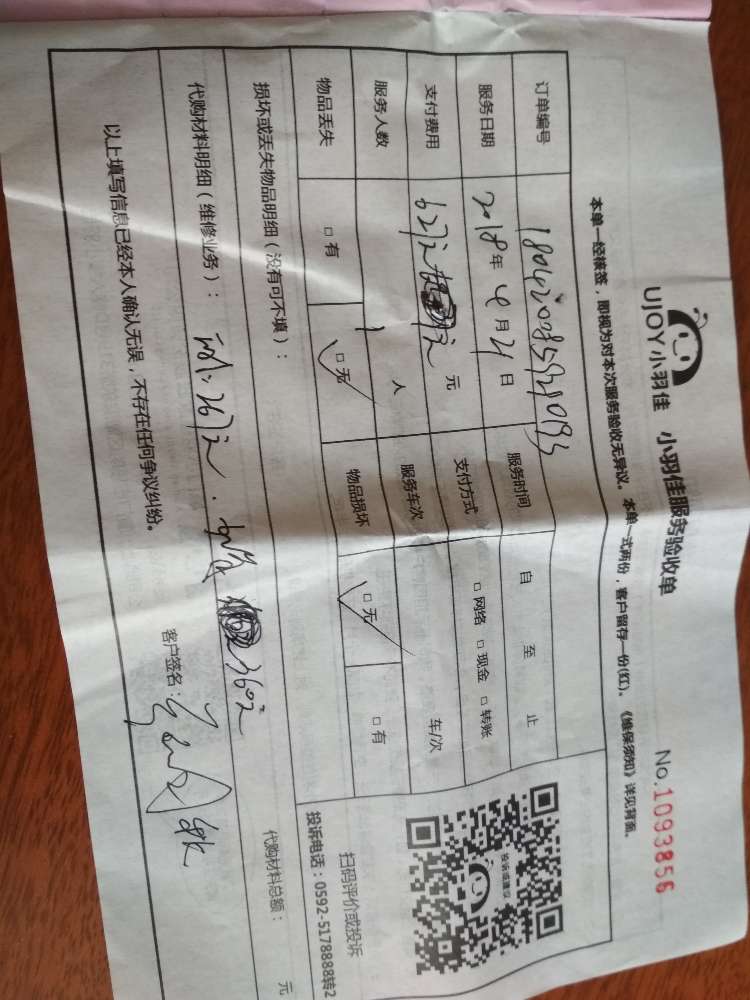 UJOY小羽佳 小羽佳服务验收单
No.1093856
本单一经核签，即视为对本次服务验收无异议。本单一式两份，客户留存一份(红)。《维保须知》详见背面。
订单编号
服务日期 2018年4月21日 服务时间 自 至 止
支付费用 627元 元 支付方式 □网络 □现金 □转账
服务人数 1 人 服务车次 车/次
物品丢失 □有 □无 物品损坏 □无 □有
投诉或建议
扫码评价或投诉
投诉电话：0592-5178888转2
损坏或丢失物品明细（没有可不填）：
代购材料明细（维修业务）： 267元 360元
代购材料总额： 元
以上填写信息已经本人确认无误，不存在任何争议纠纷。
客户签名：